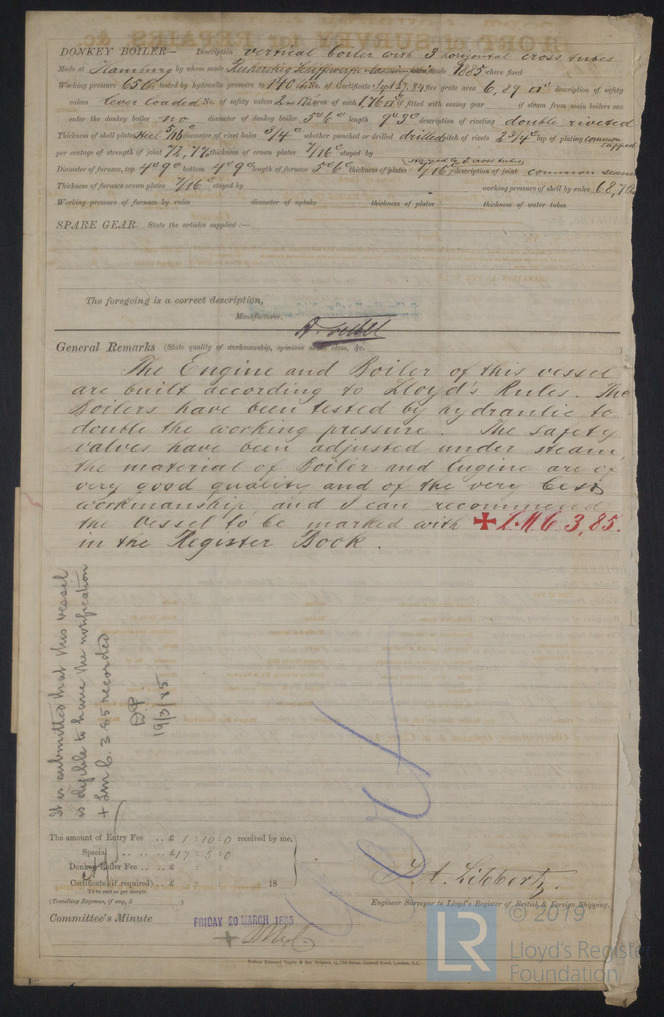 DONKEY BOILER— Description vertical boiler with 3 horizontal cross tubes
Made at Hamburg by whom made made 1885 where fixed
Working pressure 65 lb tested by hydraulic pressure to 140 lb No. of Certificate fire grate area 6,29 description of safety
valves lever loaded No. of safety valves 2 area of each 1,76 if fitted with easing gear if steam from main boilers can
enter the donkey boiler no diameter of donkey boiler 5'6" length 9'3" description of riveting double riveted
Thickness of shell plates steel diameter of rivet holes 3/4" whether punched or drilled drilled pitch of rivets 2 3/4" lap of plating common lapped
per centage of strength of joint 72,7% thickness of crown plates 7/16" stayed by
(stayed by 3 cross tubes)
Diameter of furnace, top 4'9" bottom 4'9" length of furnace 5'6" thickness of plates 7/16" description of joint common seam
Thickness of furnace crown plates 7/16" stayed by working pressure of shell by rules 68,7
Working pressure of furnace by rules diameter of uptake thickness of plates thickness of water tubes
SPARE GEAR. State the articles supplied :—
The foregoing is a correct description,
Manufacturer.
General Remarks (State quality of workmanship, opinions as to class, &c.
The Engine and Boiler of this vessel
are built according to Lloyd's Rules. The
Boilers have been tested by hydraulic to
double the working pressure. The safety
valves have been adjusted under steam,
the material of Boiler and Engine are of
very good quality and of the very best
workmanship and I can recommend
the vessel to be marked with + L.M.C. 3,85.
in the Register Book.
It is submitted that this vessel
is eligible to have the notification
+ LMC. 3.85 recorded
19/3/85
The amount of Entry Fee .. £ 1 : 10 : 0 received by me,
Special .. .. £ 17 : 5 : 0
Donkey Boiler Fee .. .. £
Certificate (if required) .. £ 18
To be sent as per margin.
(Travelling Expenses, if any, £ )
Engineer Surveyor to Lloyd's Register of British & Foreign Shipping.
Committee's Minute
FRIDAY 20 MARCH 1885
© 2019
LR
Lloyd's Register
Foundation